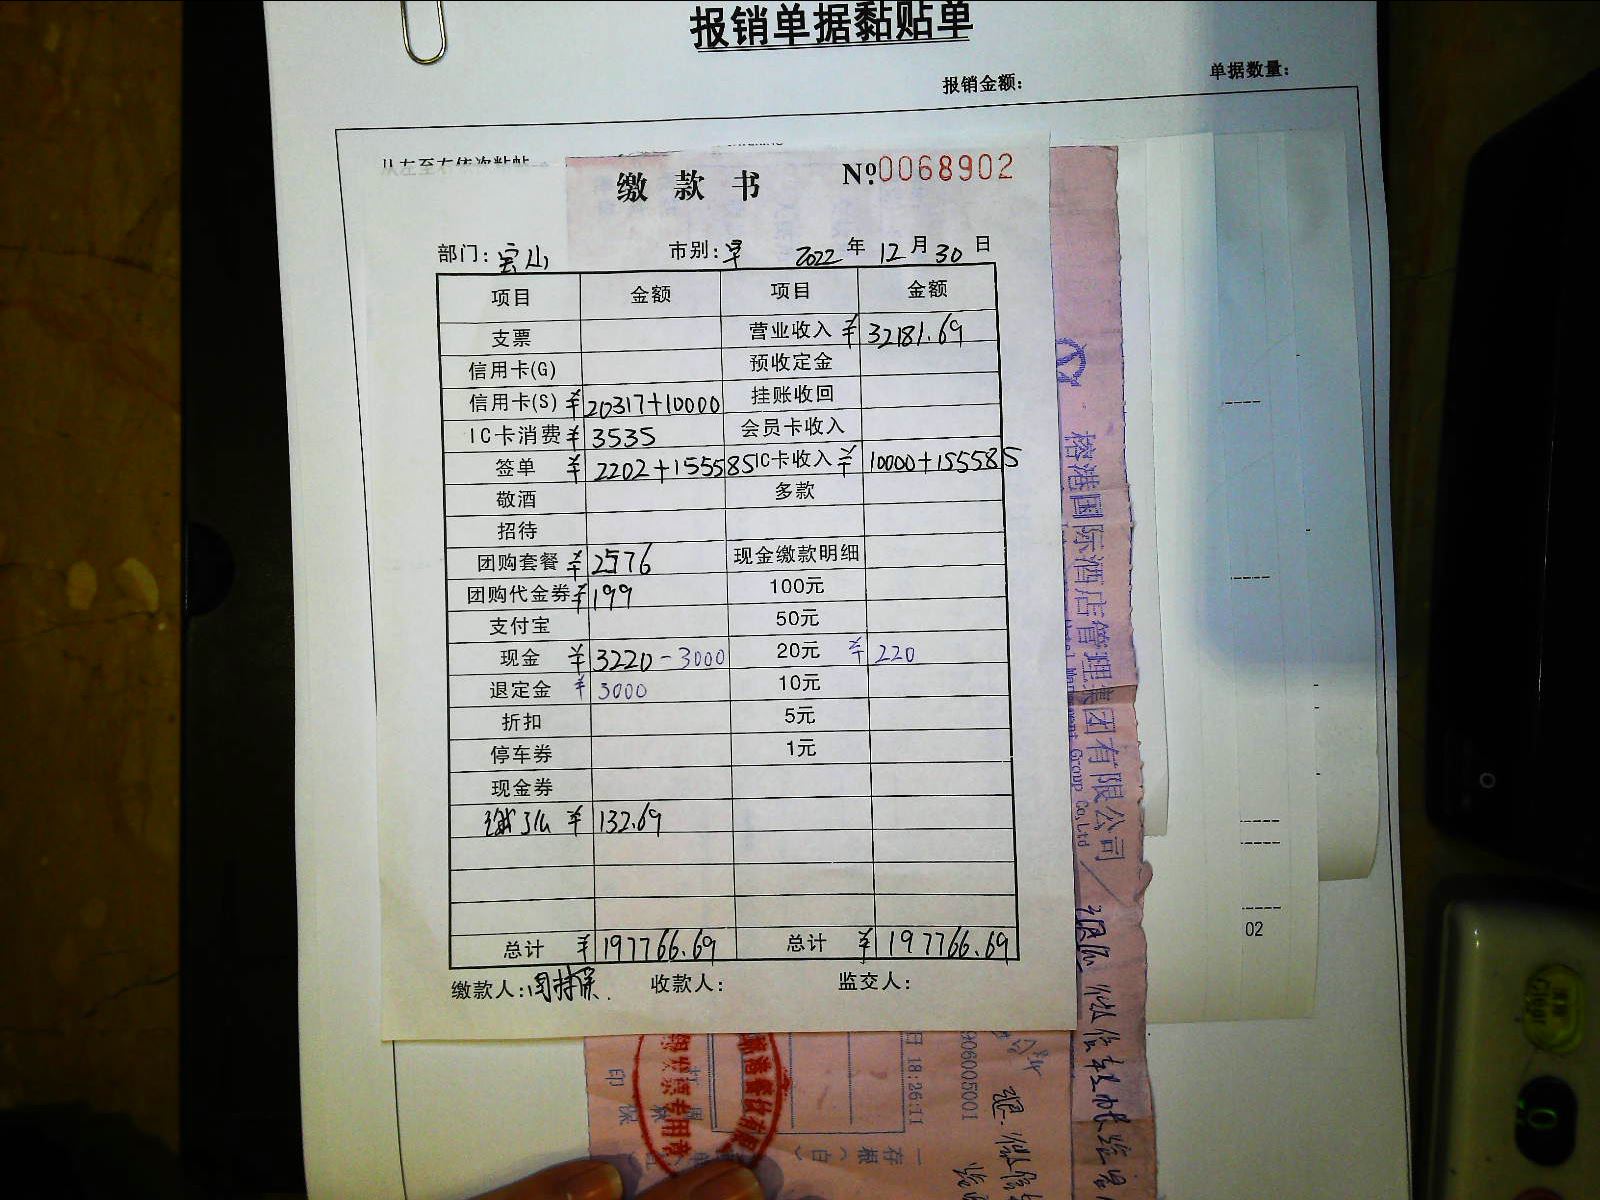 报销单据黏贴单
报销金额: 单据数量:
从左至右依次粘帖
缴款书 №0068902
部门: 宝山 市别: 早 2022 年 12 月 30 日
项目 金额 项目 金额
支票 营业收入 ¥ 32181.69
信用卡(G) 预收定金
信用卡(S) ¥ 20317+10000 挂账收回
IC卡消费 ¥ 3535 会员卡收入
签单 ¥ 2202+155585 IC卡收入 ¥ 10000+155585
敬酒 多款
招待
团购套餐 ¥ 2576 现金缴款明细
团购代金券 ¥ 199 100元
支付宝 50元
现金 ¥ 3220-3000 20元 ¥ 220
退定金 ¥ 3000 10元
折扣 5元
停车券 1元
现金券
¥ 132.69
总计 ¥ 197766.69 总计 ¥ 197766.69
缴款人: 收款人: 监交人:
榕港国际酒店管理集团有限公司
Group Co,Ltd
02
日 18:26:11
906005001
发票专用章